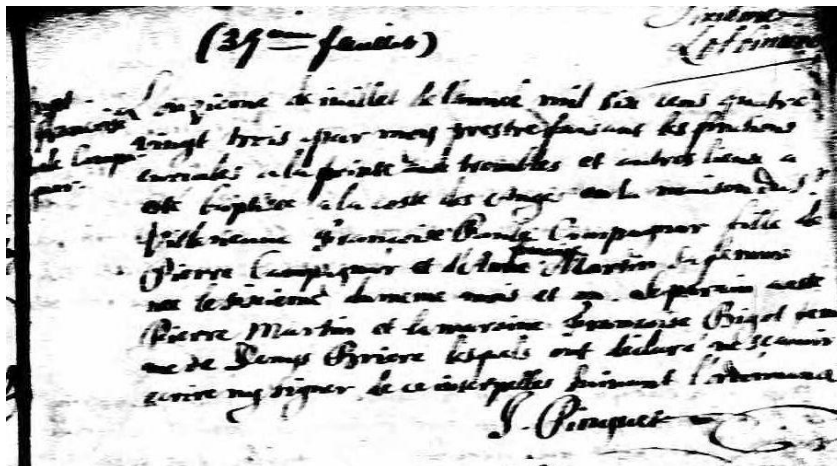 (35eme feuillet)
bapt
francoise
paule Campa
gnar
L'onzieme de iuillet de l'annee mil six cens quatre
vingt trois par moy prestre faisant les fonctions
curiales a la pointe aux trembles et autres lieux a
esté baptisée a la coste des anges en la maison du Sr
Villeneuve Francoise Paule Campagnar fille de
Pierre Campagnar et d'Anne Martin sa femme
nee le sixieme du meme mois et an. Le parain a esté
Pierre Martin et la maraine Francoise Bigot fem
me de Denys Briere lesquels ont declaré ne scavoir
ecrire ny signer de ce interpellés suivant l'ordonnance
J. Pinguet